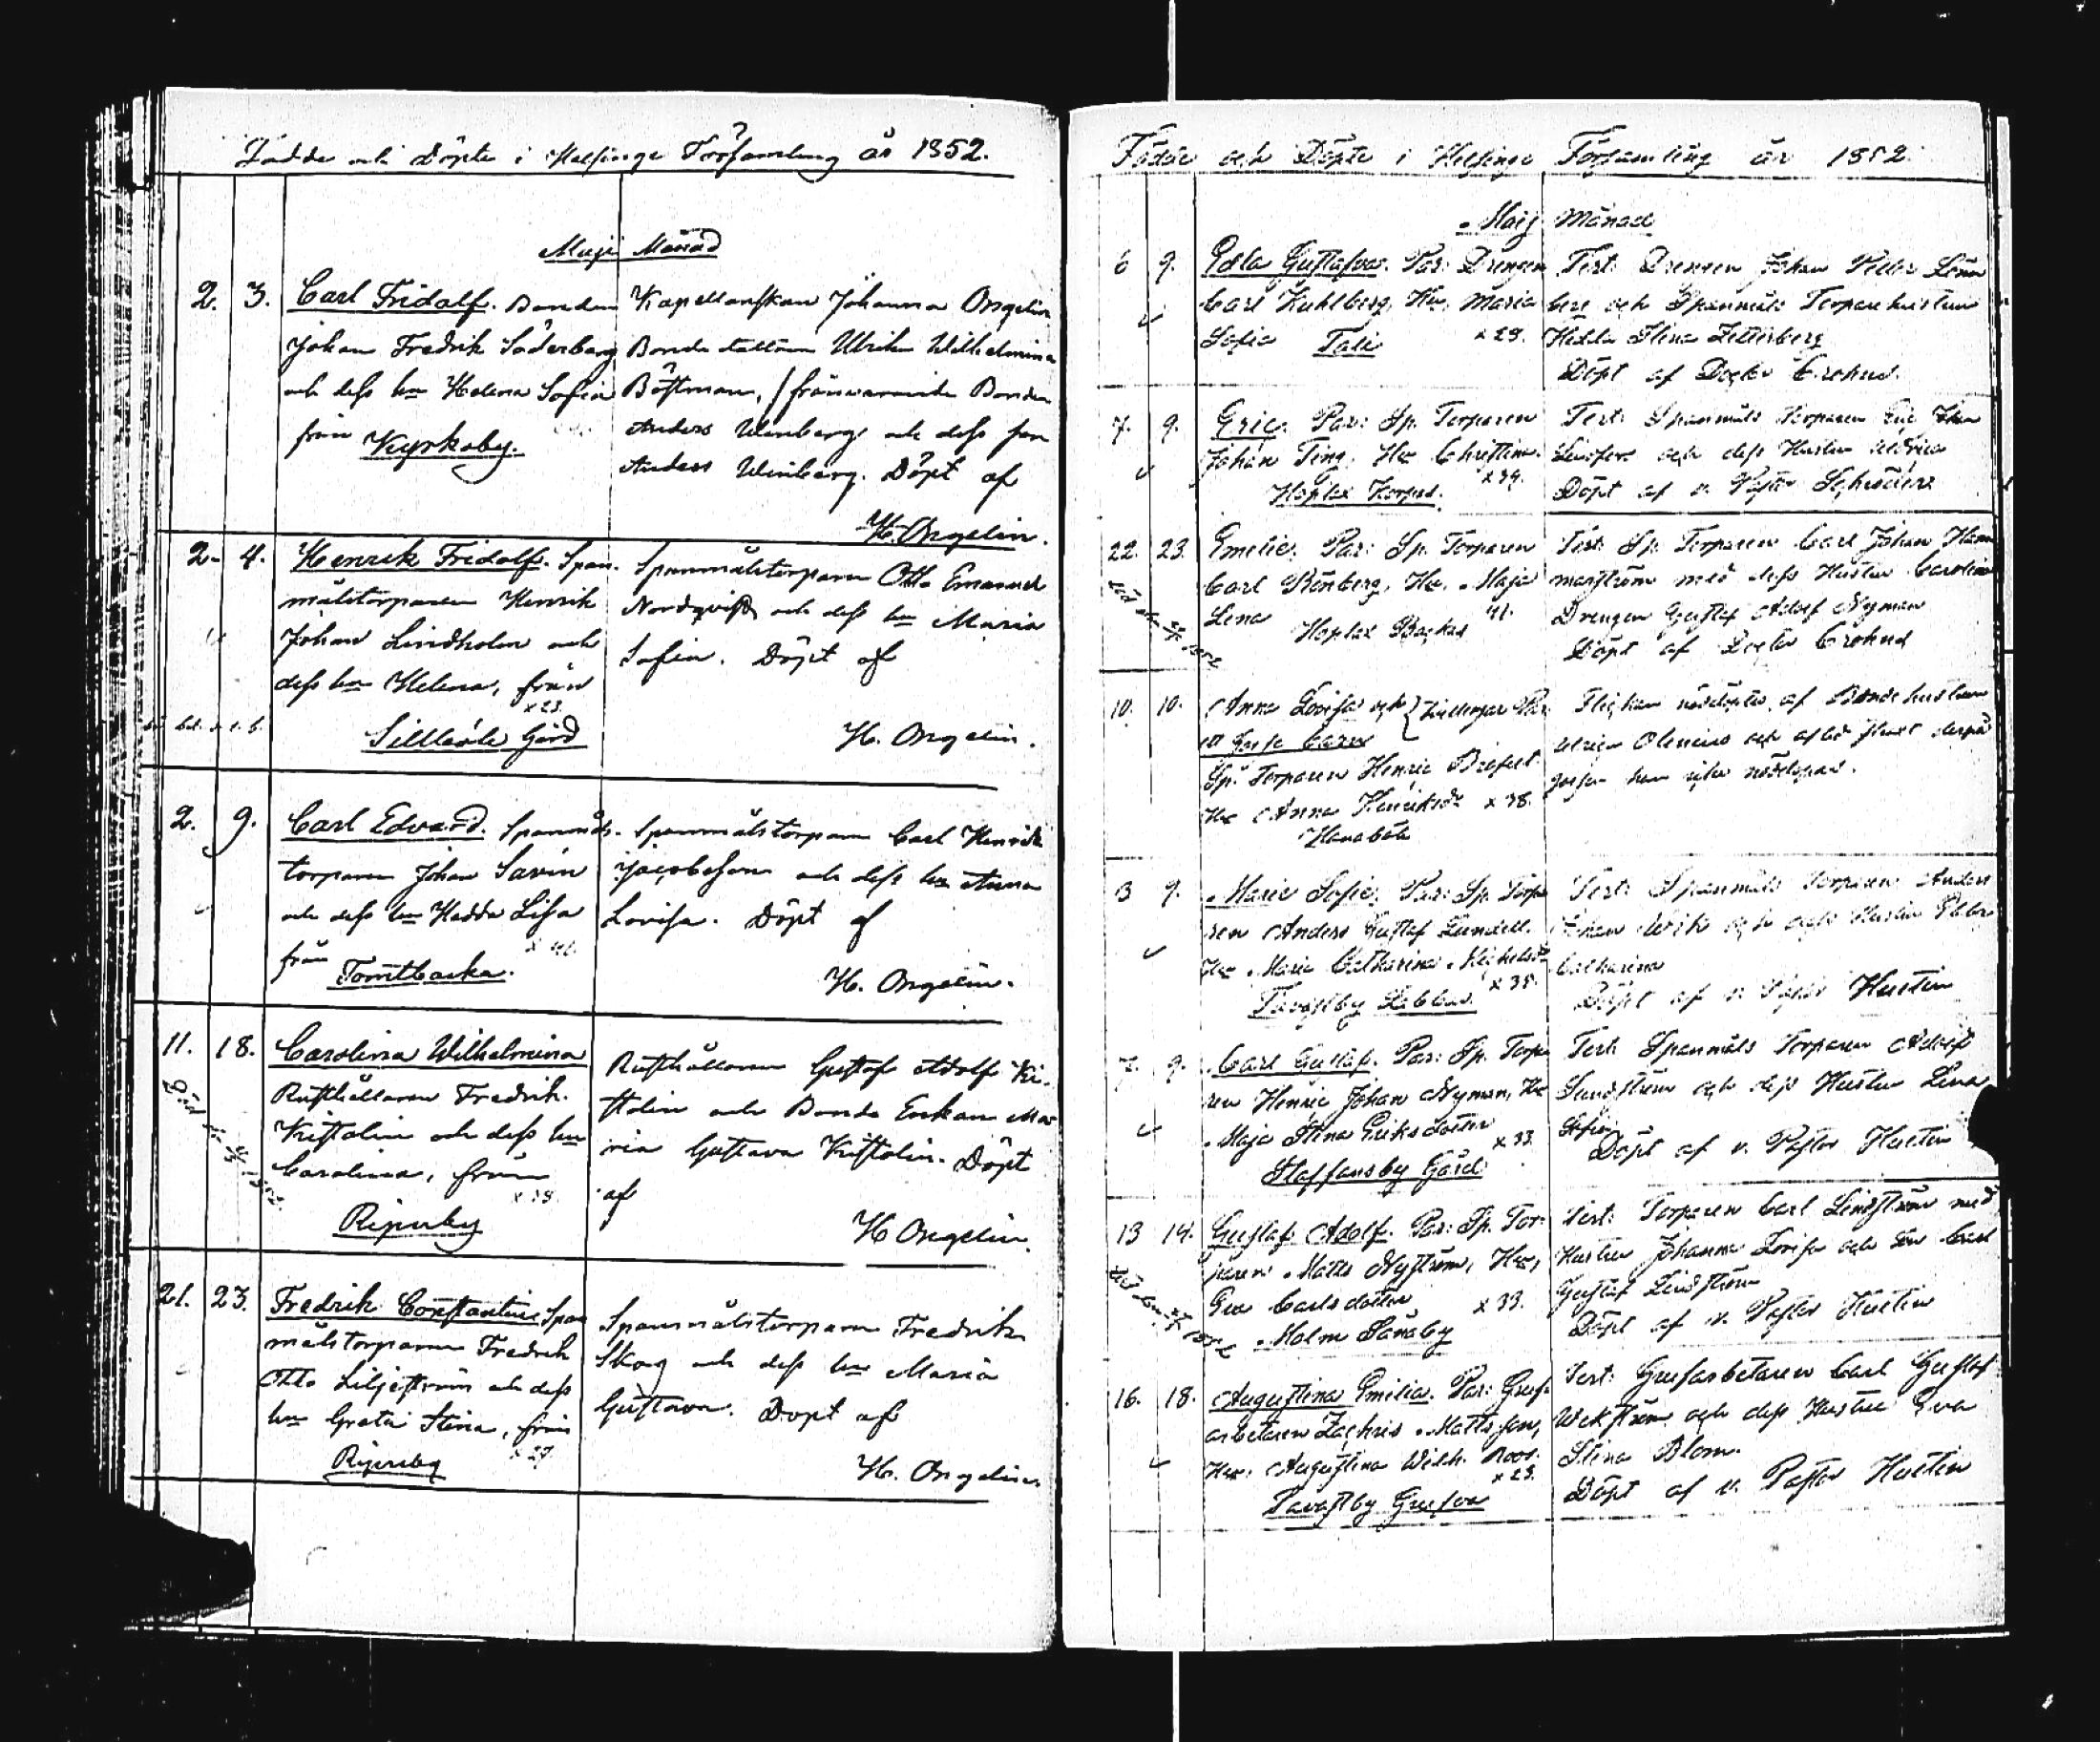 Födde och Döpte i Helsinge Församling år 1852.
Maji Månad
2. 3. Carl Fridolf. Bonden
Johan Fredrik Söderberg
och dess hu Helena Sofia
från Kyrkoby.
Kapellanskan Johanna Ongelin
Bonde Ulrika Wilhelmina
Böstman, frånvarande Bonden
Anders Winberg och dess son
Anders Winberg. Döpt af
H. Ongelin.
2. 4. Henrik Fridolf. Span-
målstorparen Henrik
Johan Lindholm och
dess hu Helena, från
x 23.
Sillböle Gård
Spanmålstorparen Otto Emanuel
Nordqvist och dess hu Maria
Sofia. Döpt af
H. Ongelin.
2. 9. Carl Edvard. Spanmåls-
torparen Johan Savin
och dess hu Hedda Lisa
från Tomtbacka.
Spanmålstorparen Carl Henrik
Jacobsson och dess hu Anna
Lovisa. Döpt af
H. Ongelin.
11. 18. Carolina Wilhelmina
Rusthållaren Fredrik
Kristolin och dess hu
Carolina, från
Ripuby
Rusthållaren Gustaf Adolf Kri-
stolin och Bonde Enkan Ma
ria Gustava Kristolin. Döpt
af
H Ongelin.
21. 23. Fredrik Constantin Span
målstorparen Fredrik
Otto Liljeström och dess
hu Greta Stina, från
x 27.
Ripuby
Spanmålstorparen Fredrik
Skog och dess hu Maria
Gustava. Döpt af
H. Ongelin.
Födde och Döpte i Helsinge Församling år 1852.
Maij Månad
6 9. Edla Gustafva. Par: Drengen
Carl Kuhlberg, Hu. Maria
Sofia Tali x 29.
Test: Drengen Johan Petter Lönn
och Spanmåls Torparehustrun
Hedda Stina Zetterberg
Döpt af Doctor Crohns.
7. 9. Eric. Par: Sp. Torparen
Johan Ting, Hu Christina
x 39.
Hoplax Korpas.
Test: Spanmåls Torparen Eric Johan
Lindfors och dess Hustru Ulrica
Döpt af v. Pastor
22. 23. Emelie. Par: Sp. Torparen
Carl Renberg, Hu. Maja
Lena 41.
Hoplax Backas
Test: Sp. Torparen Carl Johan Ham
marström med dess Hustru Carolina
Drengen Gustaf Adolf Nyman
Döpt af Doctor Crohns
10. 10. Anna Lovisa och Tvillingar Par:
ett Gosse barn
Sp. Torparen Henric
Hu Anna Henriksdr x 38.
Hanaböle
Flickan nöddöptes af Bonde hustrun
Ulrica Olenius och afled strax derpå
gossen han icke nöddöpas.
3 9. Marie Sofie. Par: Sp. Torpa
ren Anders Gustaf Lundell.
Hu Maria Catharina Michelsdr
x 38.
Tavastby
Test: Spanmåls Torparen Anders
Johan Wik och dess Hustru
Catharina
Döpt af v. Pastor Hustin
7. 9. Carl Gustaf. Par: Sp. Torpa
ren Henric Johan Nyman, Hu
Maja Stina Eriks dotter
x 33.
Staffansby Gård
Test: Spanmåls Torparen Adolf
Sundström och dess Hustru Lena
Sofia
Döpt af v. Pastor Hustin
13 14. Gustaf Adolf. Par: Sp. Tor-
paren Matts Nyström, Hu,
Eva Carlsdotter x 33.
Malm Sånaby
Test: Torparen Carl Lindström med
Hustru Johanna Lovisa och Son Carl
Gustaf Lindström
Döpt af v. Pastor Hustin
16. 18. Augustina Emilia. Par: Gruf-
arbetaren Zachris Mattsson,
Hu: Augustina Wilh. Roos.
x 23.
Tavastby Grufva
Test: Grufarbetaren Carl Gustaf
Wekström och dess Hustru Eva
Stina Blom.
Döpt af v. Pastor Hustin